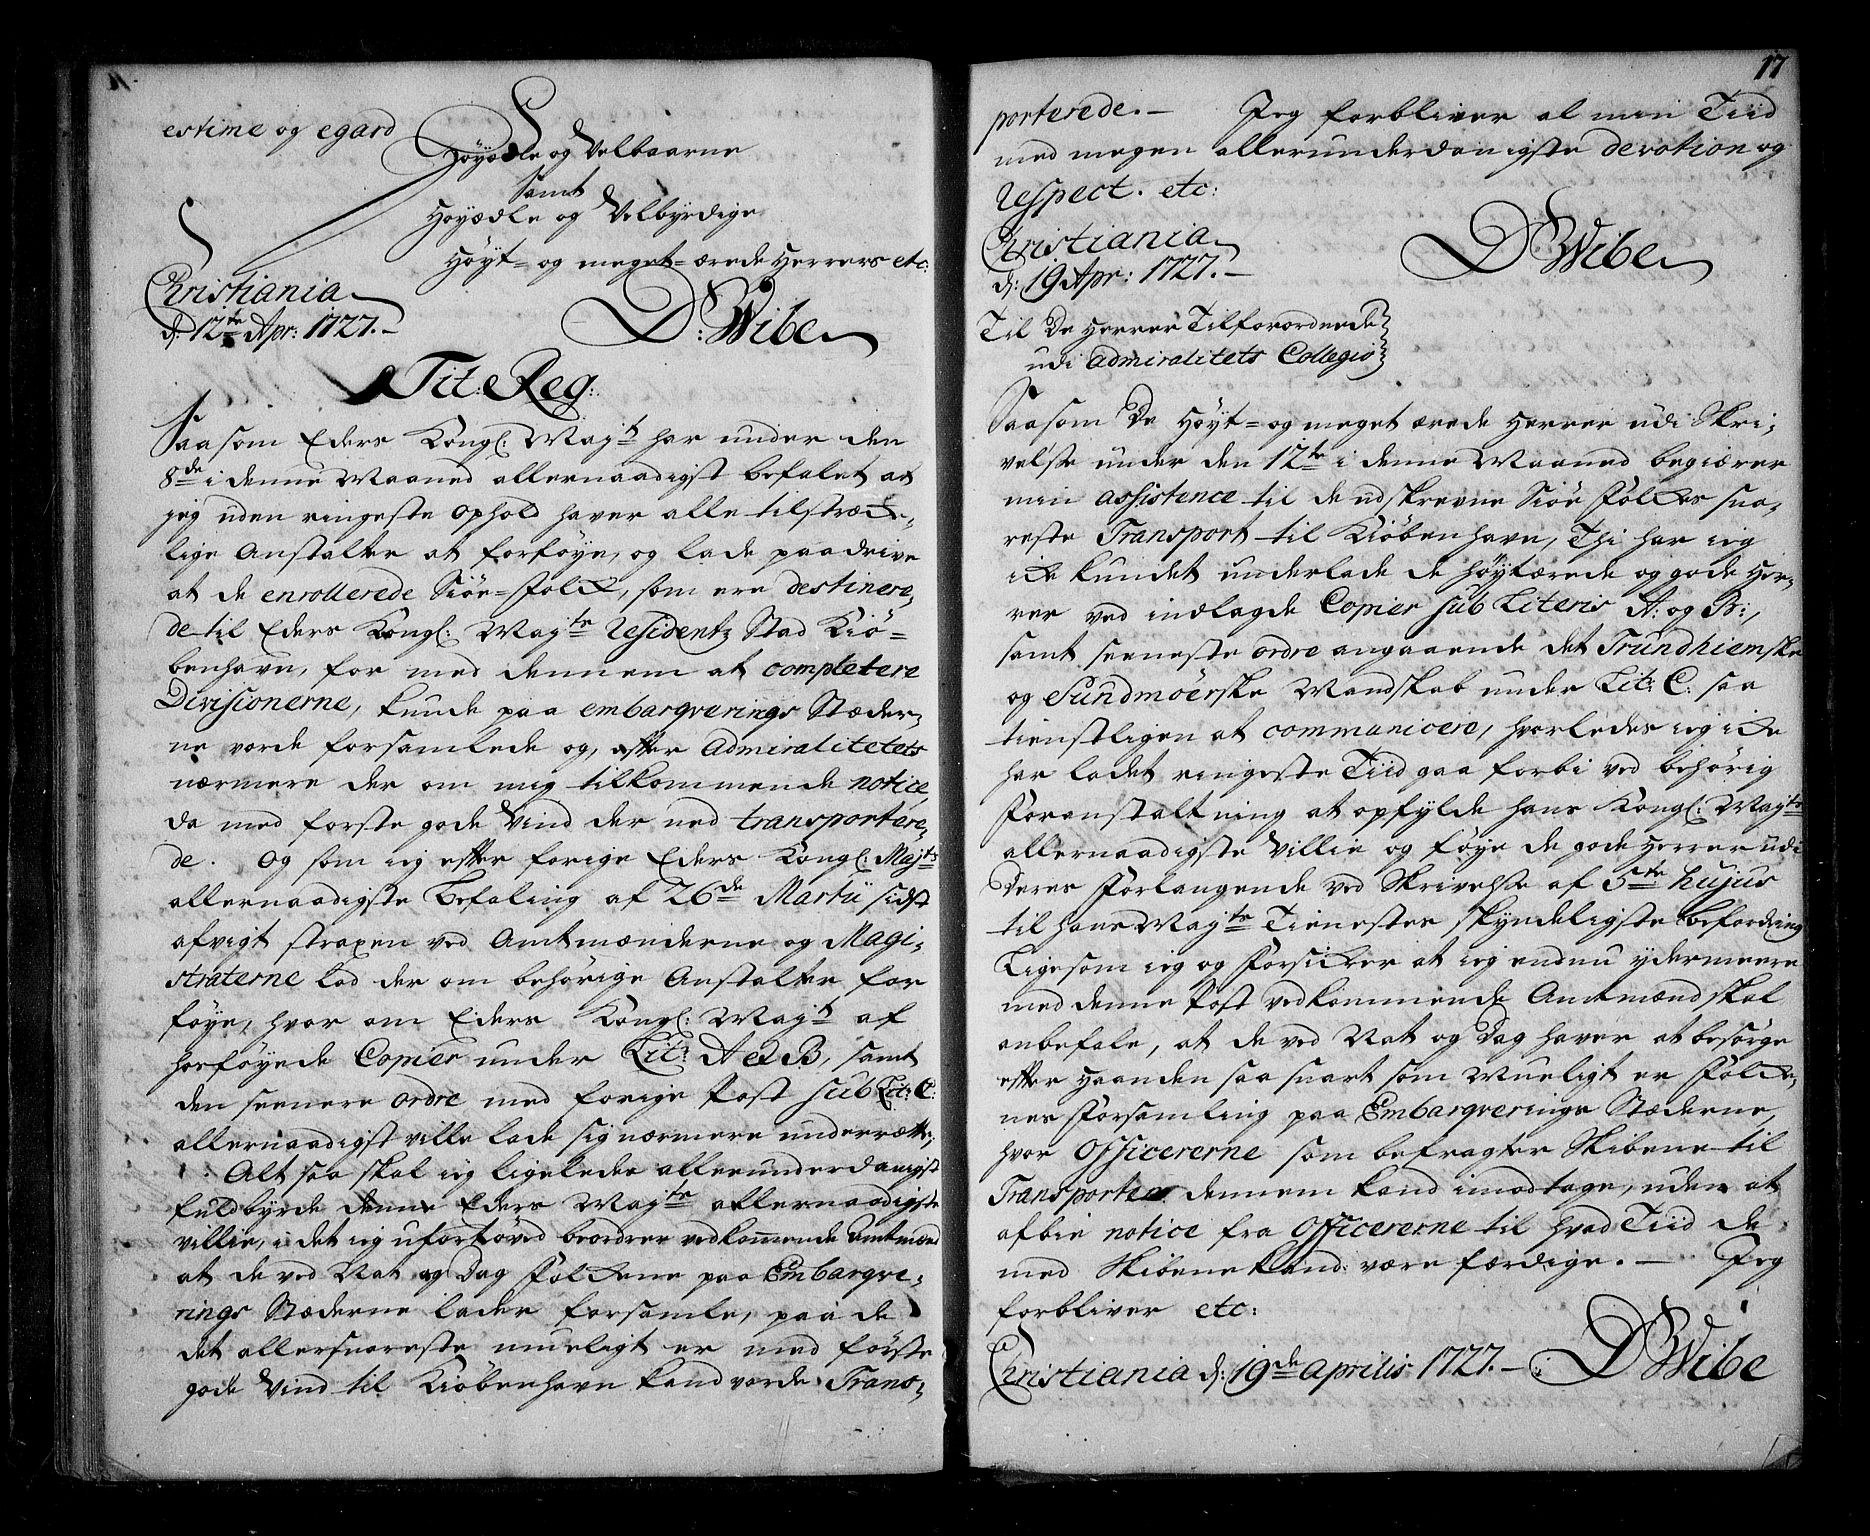 estime og egard
Höyædle og Velbaarne
Samt
Höyædle og Velbyrdige
Höyt- og meget-ærede Herrers etc:
Christiania
d: 12te Apr: 1727.-
D: Wibe
Tit: Reg:
Saasom Eders Kongl: Majt har under den
8de i denne Maaned allernaadigst befalet at
jeg uden ringeste Ophold haver alle tilstræcke-
lige Anstalter at forföye, og lade paadrive
at de enrollerede Siöe-Folck, som ere destinere-
de til Eders Kongl: Majts Residentz Stad Kiö-
benhavn, for med dennem at completere
Divisionerne, kunde paa embarqverings Stæder-
ne vorde forsamlede og, efter Admiralitetets
nærmere der om mig tilkommende notice,
da med forste gode Vind der ned transportere-
de. Og som ieg efter forige Eders Kongl: Majts
allernaadigste Befaling af 26de Martii sidst
afvigt straxen ved Amtmænderne og Magi-
straterne lod der om behörige Anstalter for
föye, hvor om Eders Kongl: Majt af
hosföyede Copier under Lit: A & B, samt
den seenere ordre med forige Post sub Lit: C:
allernaadigst ville lade sig nærmere underrætte;
Alt saa skal ieg ligeledes allerunderdanigst
fuldbyrde denne Eders Majts allernaadigste
villie, i det ieg ufortöved beordrer vedkommende Amtmænd
at de ved Nat og Dag Folckene paa Embarqve-
rings Stæderne lader forsamle, paa de
det allersnareste mueligt er med förste
gode Vind til Kiöbenhavn kand vorde Trans-
17
porterede.- Jeg forbliver al min Tiid
med megen allerunderdanigste devotion og
respect. etc:
Christiania
d: 19 Apr: 1727.-
D Wibe
Til De Herrer Tilforordnede
udi Admiralitets Collegio
Saasom De Höyt- og meget ærede Herrer udi Skri-
velse under den 12te i denne Maaned begiærer
min assistence til de udskrevne Siöe Folckes sna-
reste Transport til Kiöbenhavn, Thi har ieg
icke kundet underlade de höytærede og gode Her-
rer ved indlagde Copier sub Literis A: og B:,
samt seeneste ordre angaaende det Trundhiemske
og Sundmöerske Mandskab under Lit: C: saa
tienstligen at communicere, hvorledes ieg icke
har ladet ringeste Tiid gaa forbi ved behörig
Foranstaltning at opfylde hans Kongl: Majts
allernaadigste Villie og föye de gode Herrer udi
deres Forlangende ved Skrivelse af 5te hujus
til hans Majts Tienestes skyndeligste befordring
Ligesom ieg og forsickrer at ieg endnu ydermeere
med denne Post vedkommende Amtmænd skal
anbefale, at de ved Nat og Dag haver at besörge
efter Haanden saa snart som Mueligt er Folcke-
nes Forsamling paa Embarqverings Stæderne,
hvor Officererne som befragter Skibene til
Transporten dennem kand imodtage, uden at
afbie notice fra Officererne til hvad Tiid de
med Skibene kand være færdige.- Jeg
forbliver etc:
Christiania d: 19de Aprilis 1727.-
D Wibe